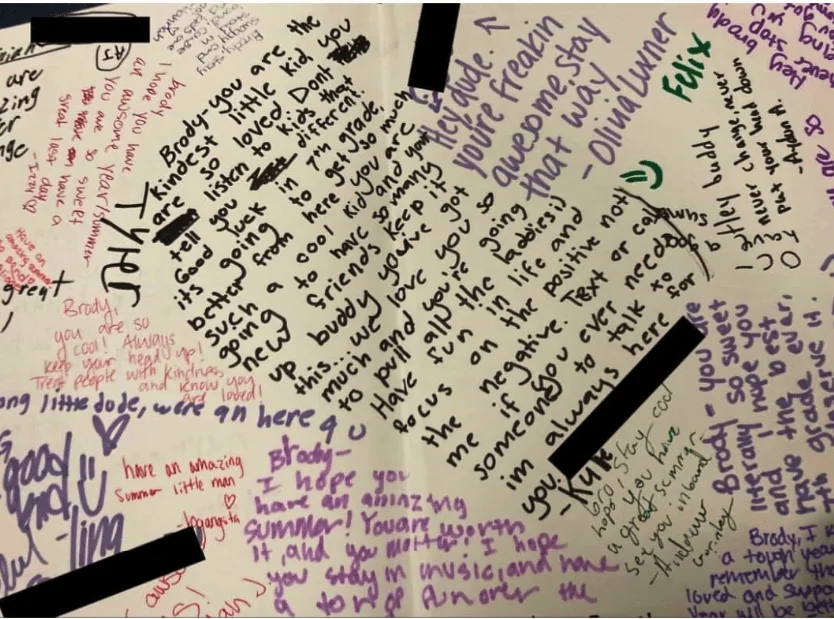 #1
are
zing
er
nge
brody
I hope you have
an awsome year/summer
you are so sweet
so have a
great last day
-Izzy
Tyler
great
Brody-you are the
kindest little kid you
are so loved Dont
listen to kids that
tell you different.
Good luck in 7th grade,
its going to get so much
better from here you are
such a cool kid and your
going to have so many
new friends keep it
up buddy you've got
this... we love you so
much and you're going
to pull all the baddies;)
Have fun in life and
focus on the positive not
the negative. Text or call
me if you ever need
someone to talk to
im always here for
you.
-Kyle
Hey dude.
you're freakin
awesome, stay
that way
-Olivia Lurner
Felix
Hey buddy
never change never
put your head down
Hey brody
never stop
Brody,
you are so
cool! Always
keep your head up!
Treat people with kindness
and know you
are loved!
ong little dude, were all here 4 U
good
-ling
have an amazing
summer little man
Brody-
I hope you
have an amazing
summer! You are worth
it, and you matter. I hope
you stay in music, and have
a ton of fun over the
bro, Stay cool
hope you have
a great summer
see you in band
Brody - you are
literally so sweet
and I hope you
have the best
7th grade ever,
you deserve it.
Brody, I
a tough year
remember tha
loved and suppo
Year will be bet